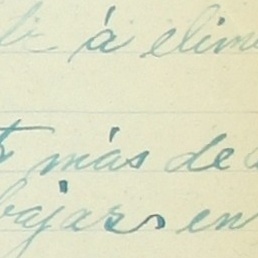 á elim
más de
bajar en